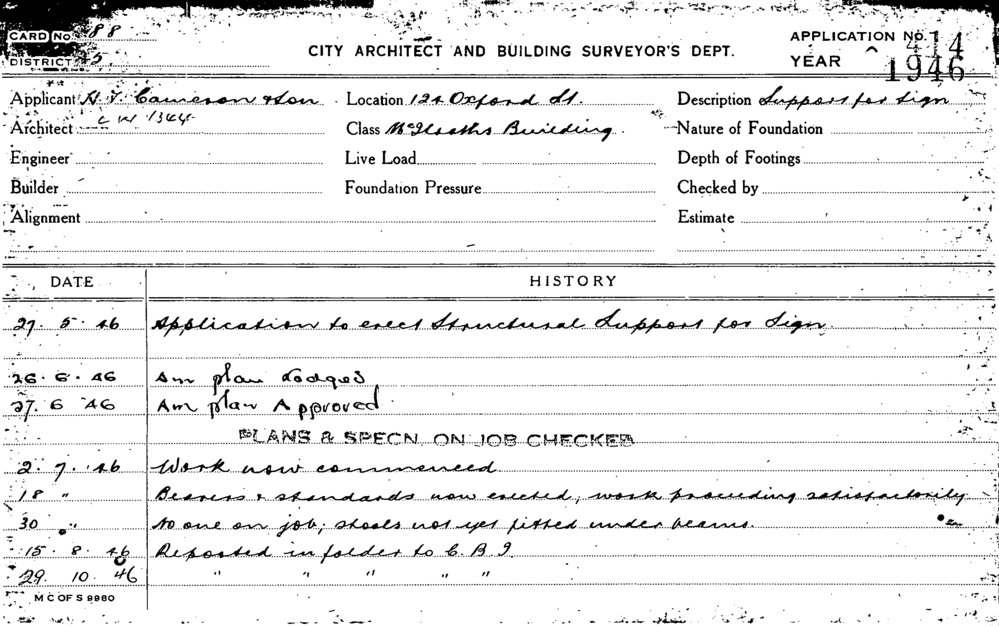 CARD No. 88
DISTRICT 5
CITY ARCHITECT AND BUILDING SURVEYOR'S DEPT.
APPLICATION No. 414
YEAR 1946
Applicant H. V. Cameron & Son Location 124 Oxford St. Description Support for Sign
Architect C W 1344 Class McIlraths Building. Nature of Foundation
Engineer Live Load Depth of Footings
Builder Foundation Pressure Checked by
Alignment Estimate
DATE HISTORY
27. 5. 46 Application to erect Structural Support for Sign.
26. 6. 46 Am plan Lodged
27. 6 46 Am plan Approved
PLANS & SPECN. ON JOB CHECKED
2. 7. 46 Work now commenced
18 " Bearers & standards now erected, work proceeding satisfactorily
30 " No one on job; stools not yet fitted under beams.
15. 8. 46 Reported in folder to C. B. I.
29. 10. 46 " " " " "
M C OF S 9980